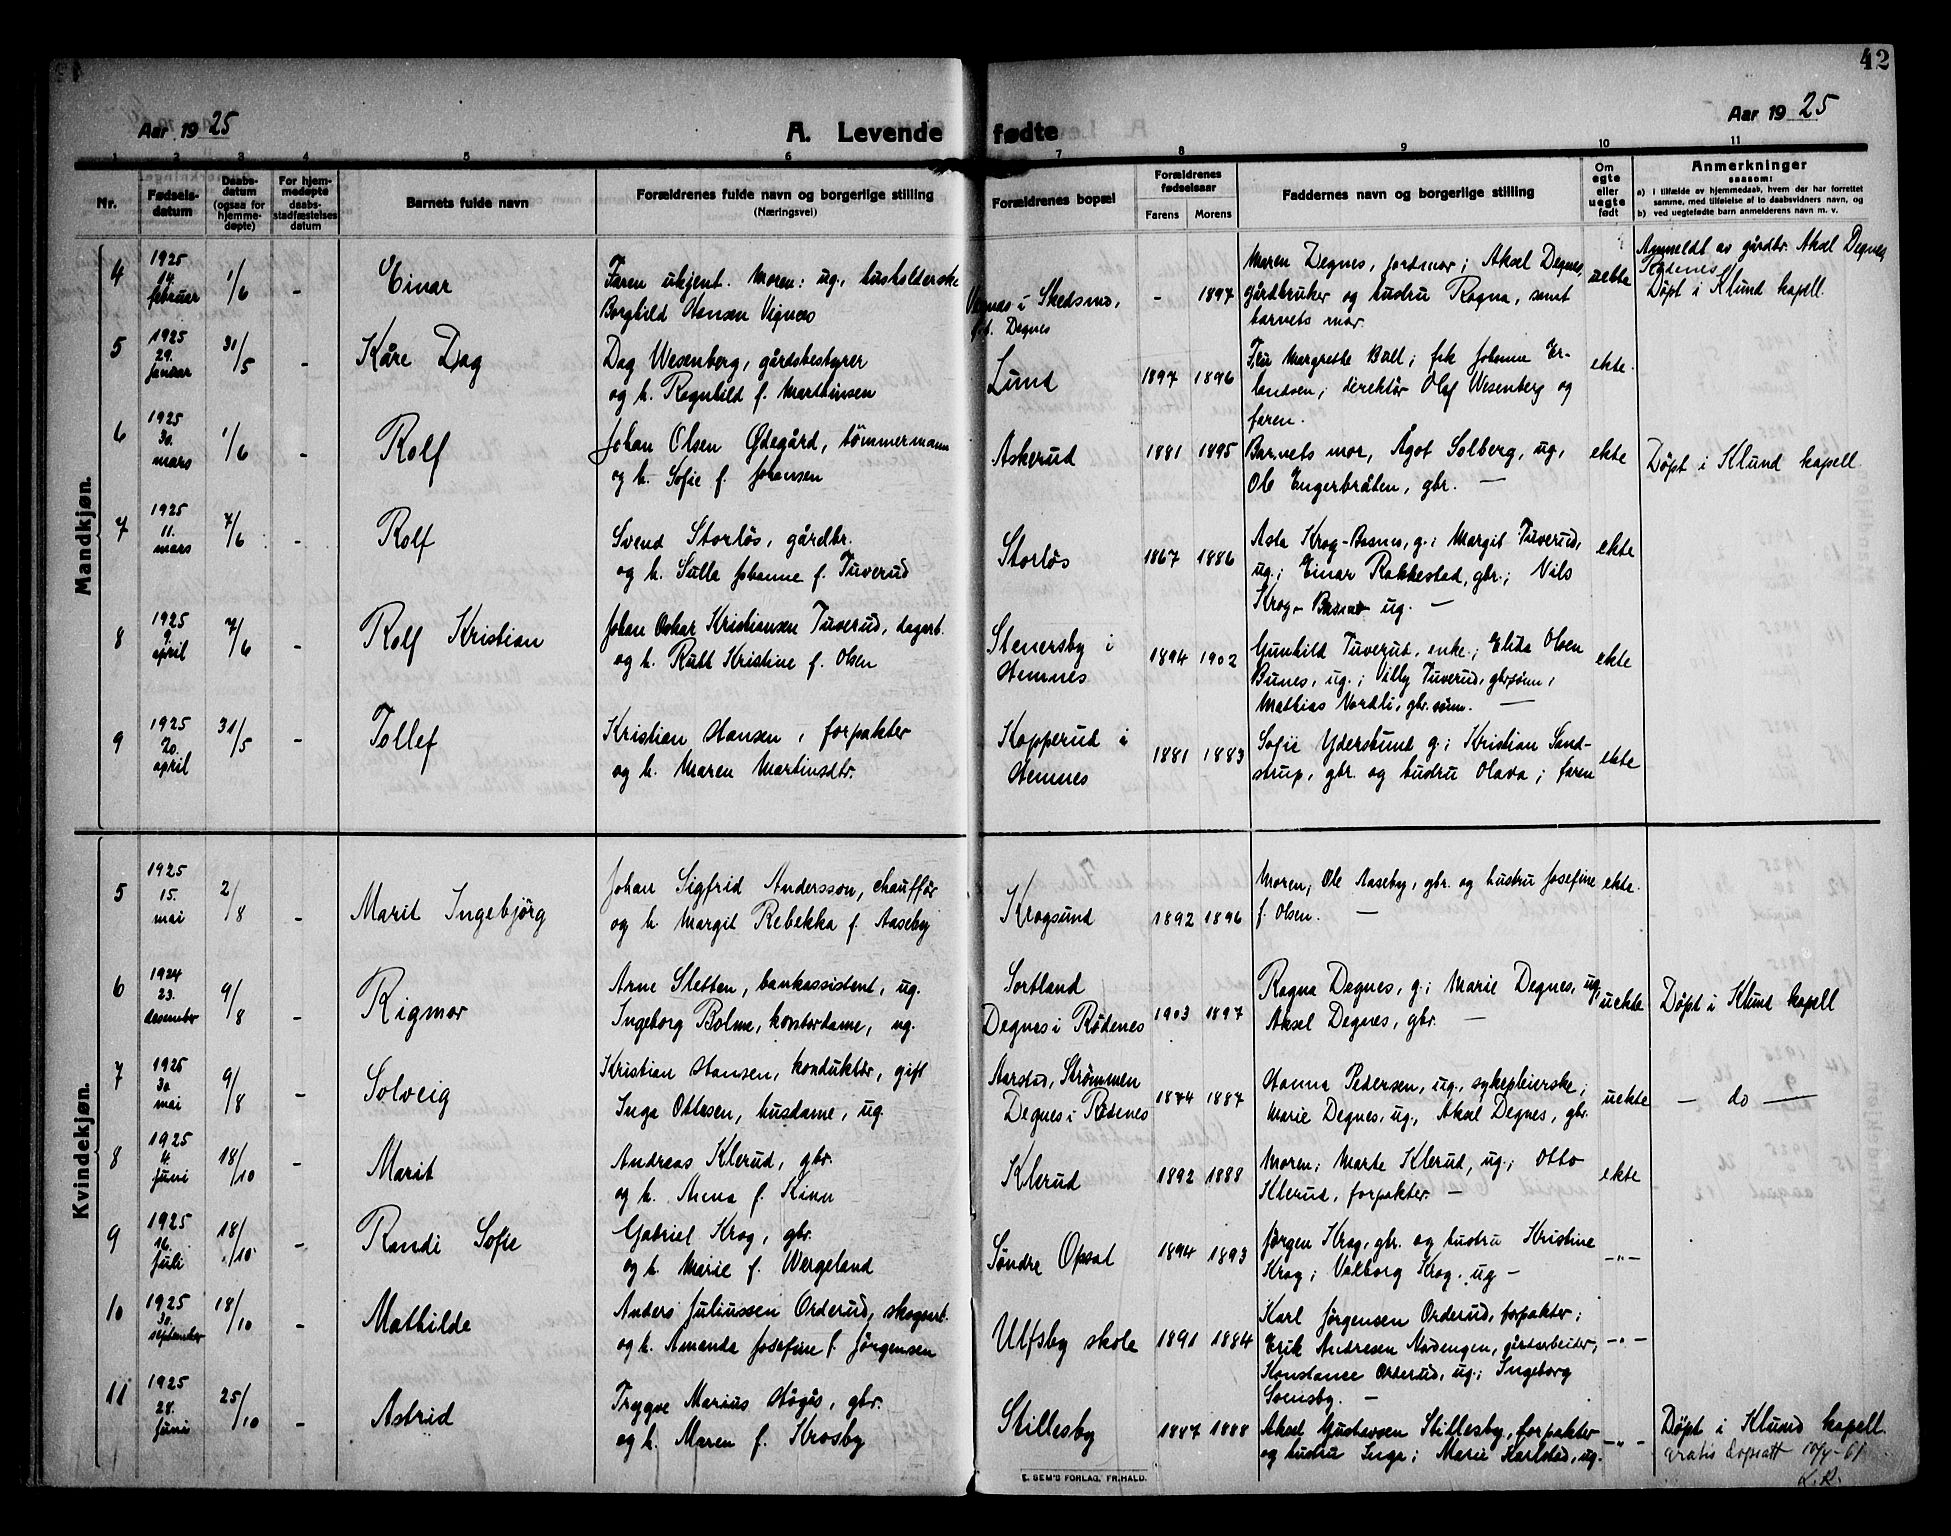 42
Aar 1925
A. Levende fødte
Aar 1925
1 2 3 4 5 6 7 8 9 10 11
Nr.
Fødsels-
datum
Daabs-
datum
(ogsaa for
hjemme-
døpte)
For hjem-
medøpte
daabs-
stadfæstelses
datum
Barnets fulde navn
Forældrenes fulde navn og borgerlige stilling
(Næringsvei)
Forældrenes bopæl
Forældrenes
fødselsaar
Farens Morens
Faddernes navn og borgerlige stilling
Om
egte
eller
uegte
født
Anmerkninger
saasom:
a) i tilfælde av hjemmedaab, hvem der har forrettet
samme, med tilføielse af to daabsvidners navn, og
b) ved uegtefødte barn anmelderens navn m. v.
Mandkjøn.
4
1925
14.
februar
1/6
Einar
Faren ukjent. Moren: ug., husholderske
Borghild Hansen Vignæs
Vignæs i Skedsmo,
Degnes
- 1897
Maren Degnes, jordmor; Aksel Degnes,
gårdbruker og hustru Ragna, samt
barnets mor.
uekte
Anmeldt av gårdbr. Aksel Degnes
Rødenes
Döpt i Klund kapell.
5
1925
29.
januar
31/5
-
Kåre Dag
Dag Wesenberg, gårdsbestyrer
og h. Ragnhild f. Marthinsen
Lund
1897 1896
Fru Margrethe Bull; frk Johanne Er-
landsen; direktör Olaf Wesenberg og
faren.
ekte.
6
1925
30.
mars
1/6
-
Rolf
Johan Olsen Ødegård, tömmermann
og h. Sofie f. Johansen
Askerud
1881 1895
Barnets mor, Ågot Solberg, ug,
Ole Engerbråten, gbr. —
ekte
Döpt i Klund kapell
7
1925
11.
mars
7/6
-
Rolf
Svend Storlös, gårdbr.
og h. Sulla Johanne f. Tuverud
Storlös
1867 1886
Asta Krog-Basnes, g.; Margit Tuverud,
ug.; Einar Rakkestad, gbr.; Nils
Krog- ug. —
ekte
8
1925
9.
april
7/6
-
Rolf Kristian
Johan Oskar Kristiansen Tuverud, dagarb.
og h. Ruth Kristine f. Olsen
Stenersby i
Hemnes
1894 1902
Gunhild Tuverud, enke; Elida Olsen
Bunes, ug.; Villy Tuverud, gbrsönn,
Mathias Nordli, gbr.sönn. —
ekte
9
1925
20.
april
31/5
-
Tollef
Kristian Hansen, forpakter
og h. Maren Martinsdtr.
Kopperud i
Hemnes
1881 1883
Sofie Ydersbund g.; Kristian Sand-
strup, gbr. og hustru Olava; faren
ekte
Kvindekjøn.
5
1925
15.
mai
2/8
-
Marit Ingebjörg
Johan Sigfrid Andersson, chaufför
og h. Margit Rebekka f. Aaseby
Krogsund
1892 1896
Moren; Ole Aaseby, gbr. og hustru Josefine
f. Olsen. —
ekte.
6
1924
23.
desember
9/8
-
Rigmor
Arne Sletten, bankassistent, ug.
Ingeborg Bolme, kontordame, ug.
Sortland
Degnes i Rödenes
1903 1897
Ragna Degnes, g.; Marie Degnes, ug,
Aksel Degnes, gbr. —
uekte
Döpt i Klund kapell
7
1925
30
mai
9/8
-
Solveig
Kristian Hansen, konduktör, gift
Inga Ottesen, husdame, ug.
Aarstad, Strömmen
Degnes i Rödenes
1874 1887
Hanna Pedersen, ug., sykepleierske;
Marie Degnes, ug., Aksel Degnes, gbr.
uekte
— do —
8
1925
4.
juni
18/10
-
Marit
Andreas Klerud, gbr.
og h. Anna f.
Klerud
1892 1888
Moren; Marte Klerud, ug.; Otto
Klerud, forpakter. —
ekte
9
1925
16.
juli
18/10
-
Randi Sofie
Gabriel Krog, gbr.
og h. Marie f. Wergeland
Söndre Opsal
1894 1893
Jörgen Krog, gbr. og hustru Kristine
Krog; Valborg Krog. ug —
-"-
10
1925
30.
september
18/10
-
Mathilde
Anders Juliussen Orderud, skogsarb.
og h. Amanda Josefine f. Jörgensen
Ulfsby skole
1891 1884
Karl Jörgensen Orderud, forpakter;
Erik Andresen Nordengen, gårdarbeider;
Konstance Orderud, ug.; Ingeborg
Soensby. —
-"-
11
1925
28.
juni
25/10
-
Astrid
Trygve Marius Högås, gbr.
og h. Maren f. Krosby
Stillesby
1887 1888
Aksel Gustavsen Stillesby, forpakter
og hustru Inga; Marie Karlstad, ug.
-"-
Döpt i Klund kapell.
gratis dåpsatt 61
L.R.
E. SEM'S FORLAG, FR.HALD.